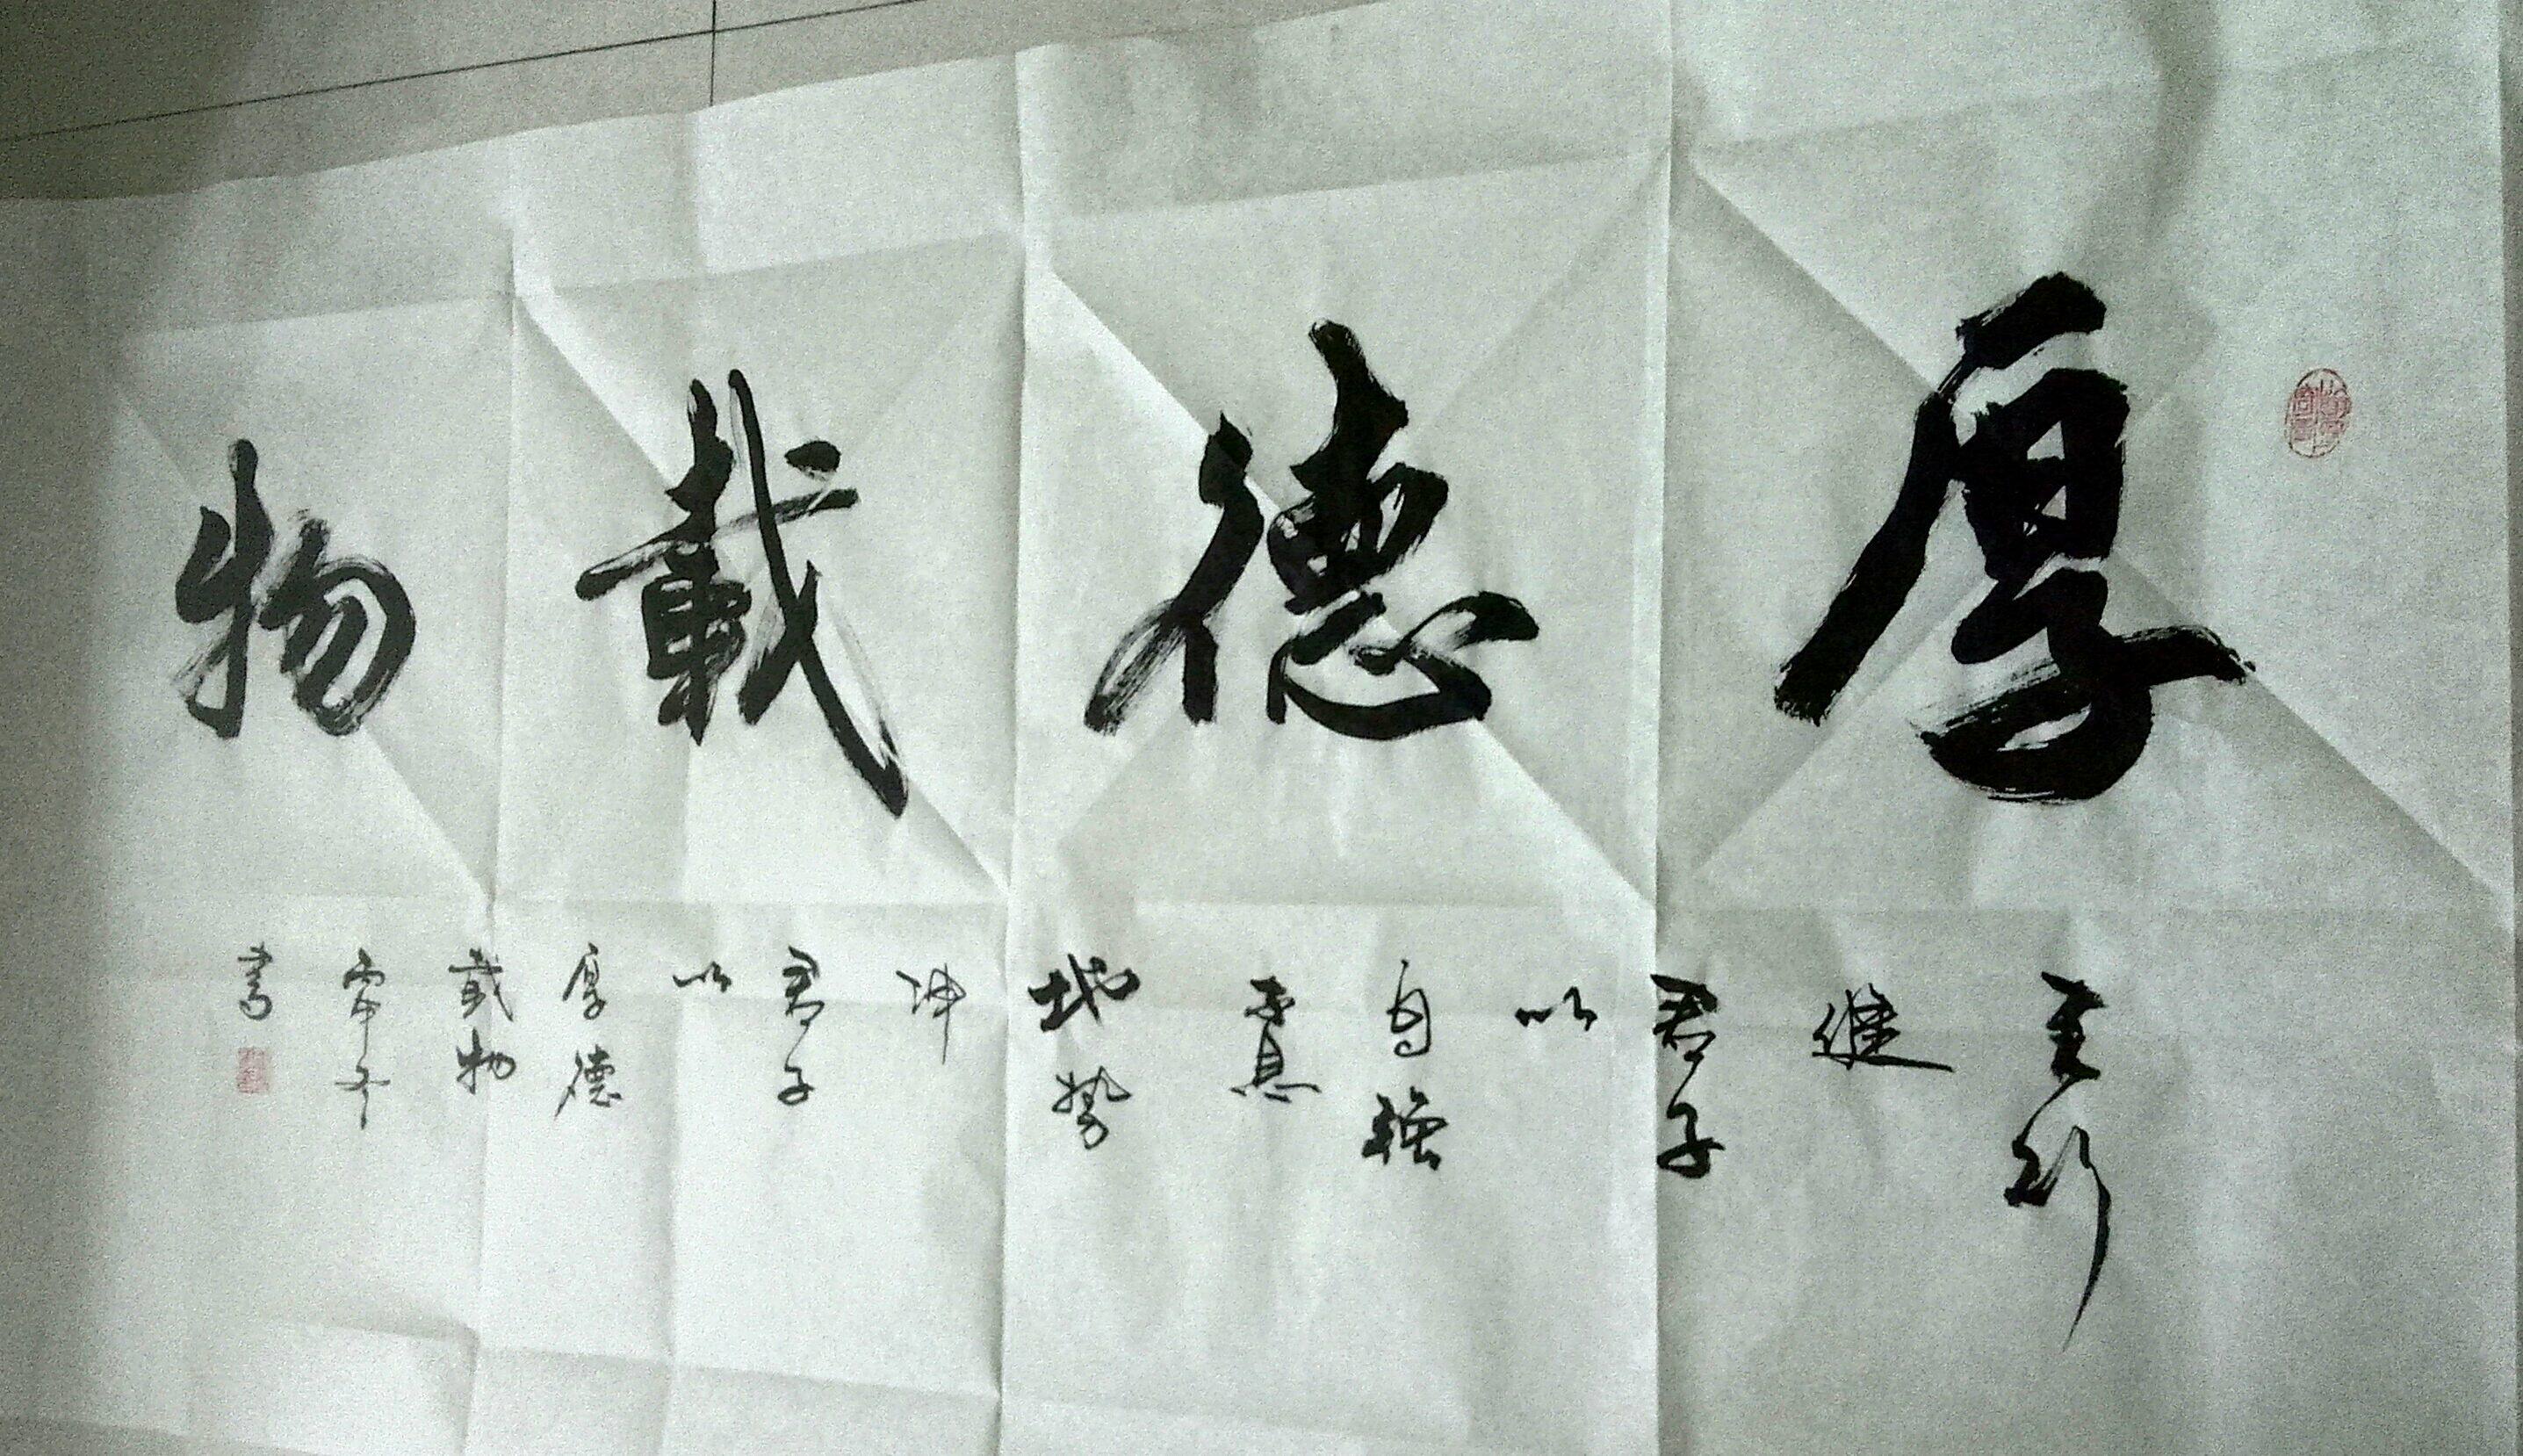 厚德載物
天行
健
君子
以
自強
不息
地勢
坤
君子
以
厚德
載物
書